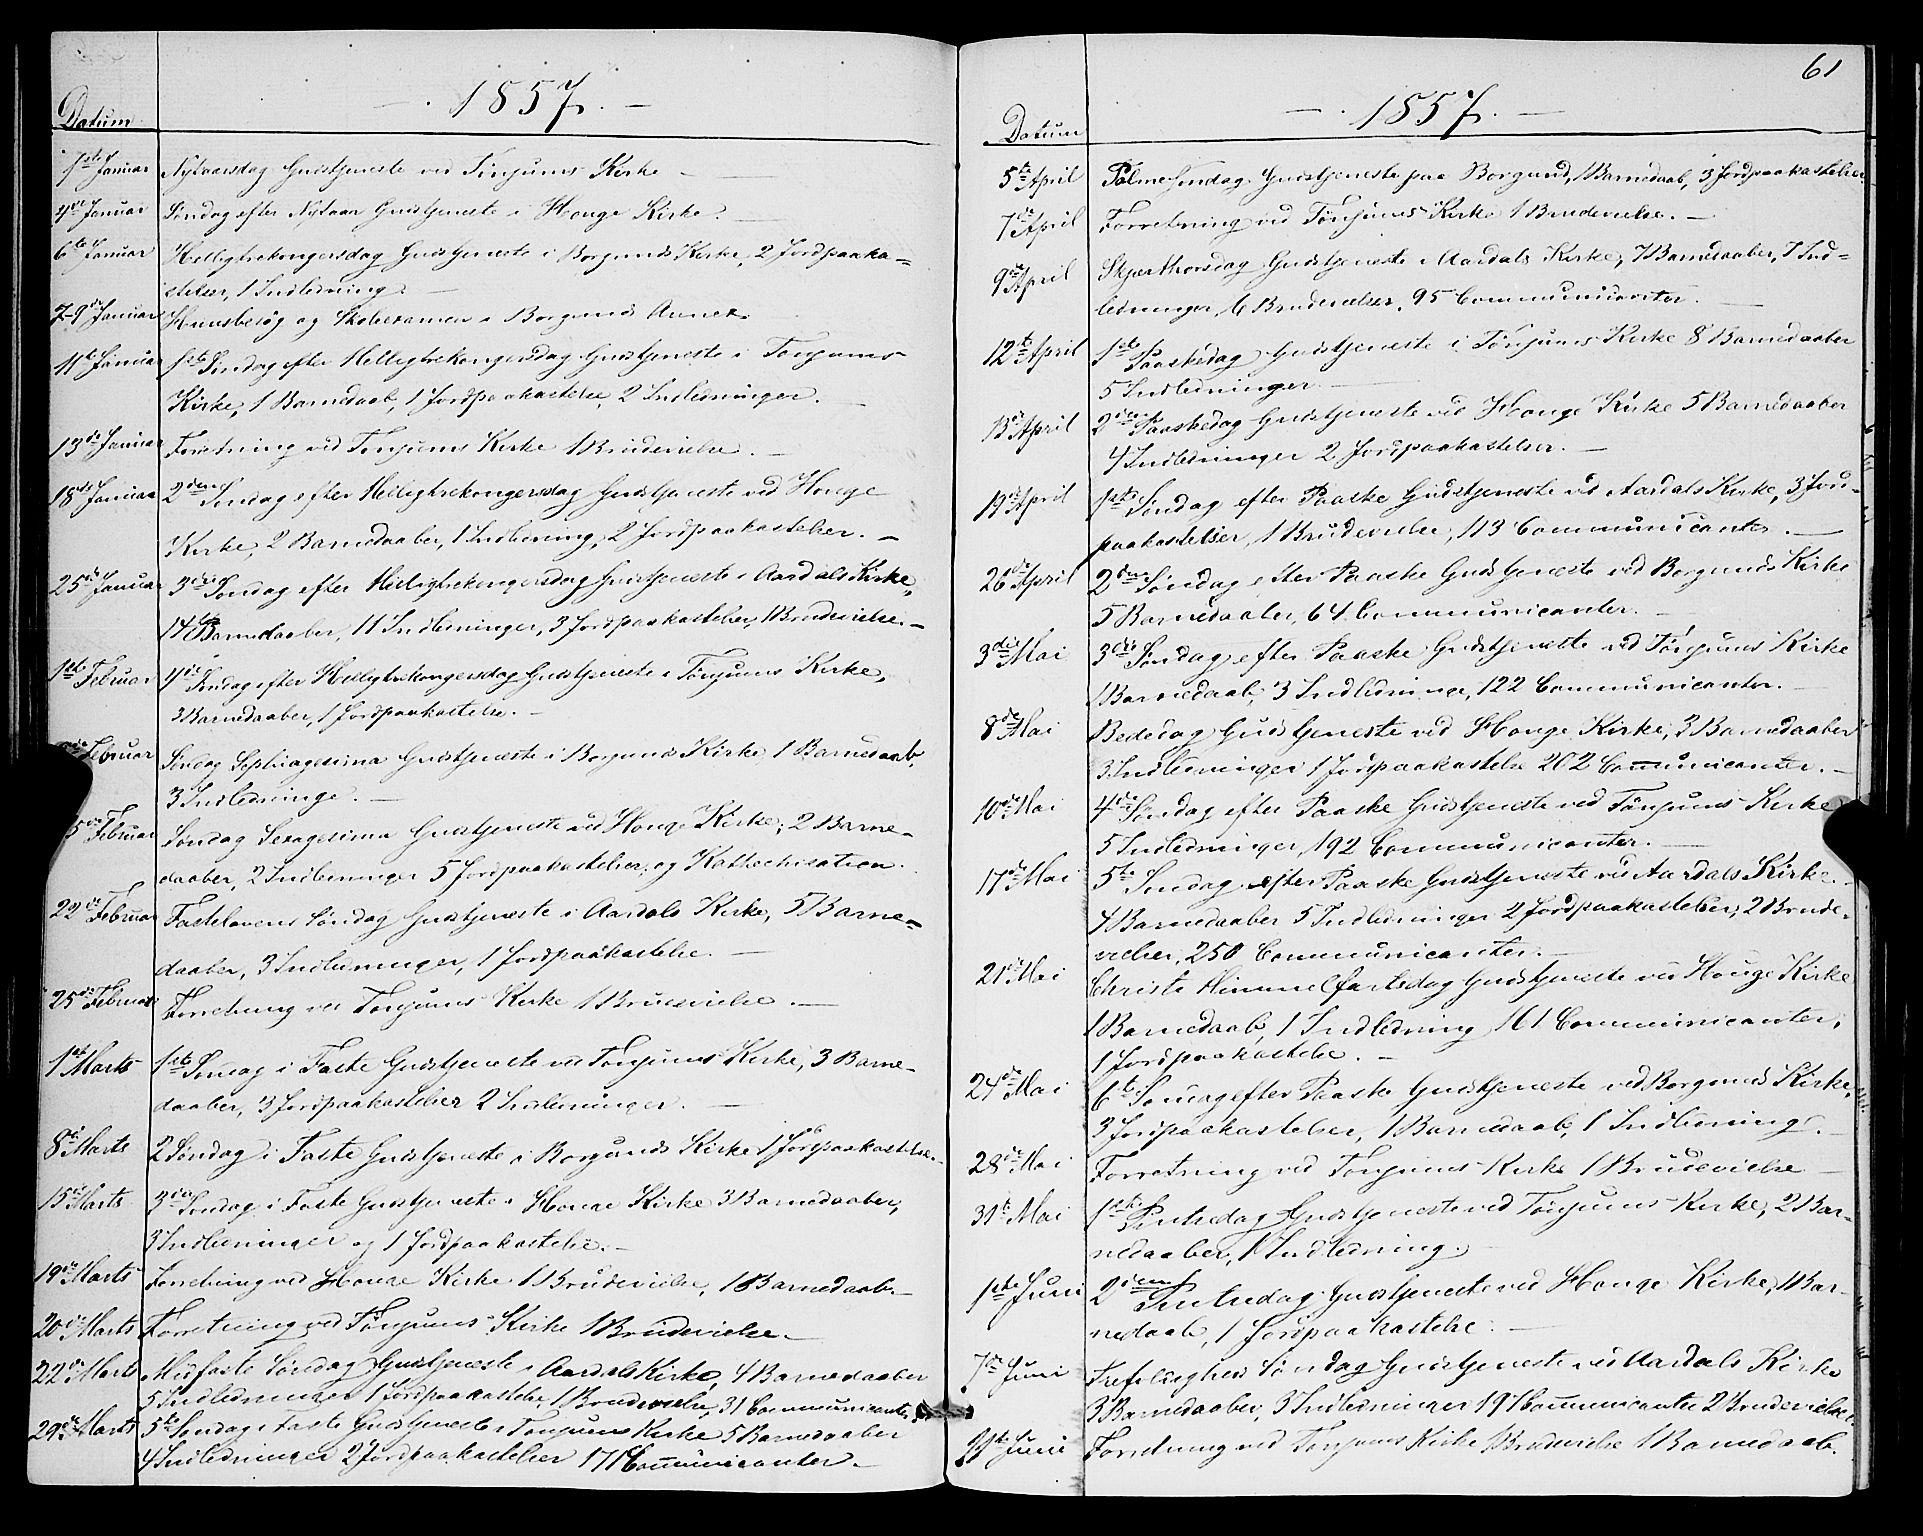 — . 1857. —
Datum
1ste Januar Nytaarsdag Gudstjeneste ved Tønjums Kirke —
4de Januar Søndag efter Nytaar Gudstjeneste i Houge Kirke. —
6te Januar Helligtrekongersdag Gudstjeneste i Borgunds Kirke, 2 Jordpaaka=
stelser, 1 Indledning. —
7-9de Januar Huusbesøg og Skoleexamen i Borgunds Annex.
11te Januar 1ste Søndag efter Helligtrekongersdag Gudstjeneste i Tønjums
Kirke, 1 Barnedaab, 1 Jordpaakastelse, 2 Indledninger. —
13de Januar Forretning ved Tønjums Kirke 1 Brudevielse. —
18de Januar 2den Søndag efter Helligtrekongersdag Gudstjeneste ved Houge
Kirke, 2 Barnedaaber, 1 Indledning, 2 Jordpaakastelser. —
25de Januar 3die Søndag efter Helligtrekongersdag Gudstjeneste i Aardals Kirke,
14 Barnedaaber, 11 Indledninger, 3 Jordpaakastelser, 1 Brudevielse. —
1ste Februar 4de Søndag efter Helligtrekongersdag Gudstjeneste i Tønjums Kirke,
3 Barnedaaber, 1 Jordpaakastelse. —
Februar Søndag Septuagesima Gudstjeneste i Borgunds Kirke, 1 Barnedaab
3 Indledninge. —
5de Februar Søndag Sexagesima Gudstjeneste ved Houge Kirke, 2 Barne=
daaber, 2 Indledninger 5 Jordpaakastelser, og Kattechisation.
22de Februar Fastelavens Søndag Gudstjeneste i Aardals Kirke, 5 Barne=
daaber, 3 Indledninger, 1 Jordpaakastelse. —
25de Februar Forretning ved Tønjums Kirke 1 Brudevielse. —
1ste Marts 1ste Søndag i Faste Gudstjeneste ved Tønjums Kirke, 3 Barne=
daaber, 3 Jordpaakastelser 2 Indledninger. —
8de Marts 2 Søndag i Faste Gudstjeneste i Borgunds Kirke 1 Jordpaakastelse. —
15de Marts 3die Søndag i Faste Gudstjeneste i Houge Kirke 3 Barnedaaber,
3 Indledninger og 1 Jordpaakastelse. —
19de Marts Forretning ved Houge Kirke 1 Brudevielse, 1 Barnedaab. —
20de Marts Forretning ved Tønjums Kirke 1 Brudevielse. —
22de Marts Midfaste Søndag Gudstjeneste i Aardals Kirke, 4 Barnedaaber
5 Indledninger 1 Jordpaakastelse, 1 Brudevielse, 31 Communicanter.
29de Marts 5te Søndag i Faste Gudstjeneste i Tønjums Kirke 5 Barnedaaber
4 Indledninger 2 Jordpaakastelser 171 Communicanter. —
61
— . 1857. —
Datum
5te April Palmesøndag Gudstjeneste paa Borgund, 1 Barnedaab, 3 Jordpaakastelser.
7de April Forretning ved Tønjums Kirke 1 Brudevielse. —
9de April Skjærthorsdag Gudstjeneste i Aardals Kirke, 7 Barnedaaber, 7 Ind=
ledninger, 6 Brudevielser, 95 Communicanter. —
12te April 1ste Paaskedag Gudstjeneste i Tønjums Kirke 8 Barnedaaber
5 Indledninger —
13de April 2den Paaskedag Gudstjeneste ved Houge Kirke 5 Barnedaaber
4 Indledninger 2 Jordpaakastelser. —
19de April 1ste Søndag efter Paaske Gudstjeneste ved Aardals Kirke, 3 Jord-
paakastelser, 1 Brudevielse, 113 Communicanter. —
26de April 2den Søndag efter Paaske Gudstjeneste ved Borgunds Kirke
5 Barnedaaber, 64 Communicanter. —
3die Mai 3die Søndag efter Paaske Gudstjeneste ved Tønjums Kirke
1 Barnedaab, 3 Indledninge, 122 Communicanter. —
8de Mai Bededag Gudstjeneste ved Houge Kirke, 3 Barnedaaber
3 Indledninger 1 Jordpaakastelse 202 Communicanter. —
10de Mai 4de Søndag efter Paaske Gudstjeneste ved Tønjums Kirke
5 Indledninger, 192 Communicanter. —
17de Mai 5te Søndag efter Paaske Gudstjeneste ved Aardals Kirke
4 Barnedaaber 5 Indledninger 2 Jordpaakastelser, 2 Brude-
vielser, 250 Communicanter. —
21de Mai Christi Himmelfartsdag Gudstjeneste ved Houge Kirke
1 Barnedaab, 1 Indledning 161 Communicanter,
1 Jordpaakastelse. —
24de Mai 6te Søndag efter Paaske Gudstjeneste ved Borgunds Kirke,
3 Jordpaakastelser, 1 Barnedaab, 1 Indledning. —
28de Mai Forretning ved Tønjums Kirke 1 Brudevielse —
31te Mai 1ste Pintsedag Gudstjeneste ved Tønjums Kirke, 2 Bar-
nedaaber, 1 Indledning. —
1ste Juni 2den Pintsedag Gudstjeneste ved Houge Kirke, 1 Bar-
nedaab, 1 Jordpaakastelse. —
7de Juni Trefoldigheds Søndag Gudstjeneste ved Aardals Kirke
3 Barnedaaber, 3 Indledninger 191 Communicanter 2 Brudevielser.
11te Juni Forretning ved Tønjums Kirke 1 Brudevielse 1 Barnedaab.